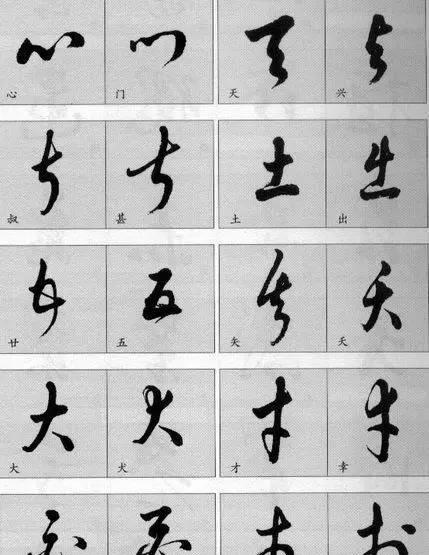 心 门 天 兴
叔 甚 土 出
廿 五 矢 夭
大 犬 才 幸